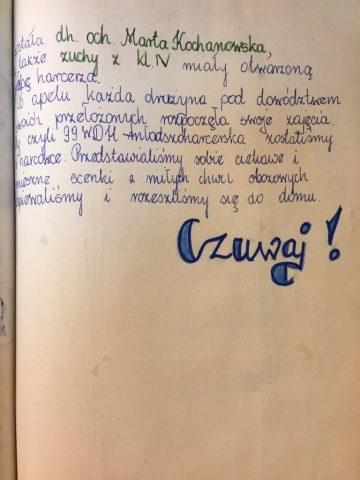 stała dh. och. Marta Kochanowska,
także zuchy z kl. IV miały otwarzoną
harcerza.
apelu każda drużyna pod dowództwem
swoich przełożonych rozpoczęła swoje zajęcia.
czyli 99 WDH - młodszoharcerska zostaliśmy
harcówce. Przedstawialiśmy sobie ciekawe i
śmieszne scenki z miłych chwil obozowych
śpiewaliśmy i rozeszliśmy się do domu.
Czuwaj!